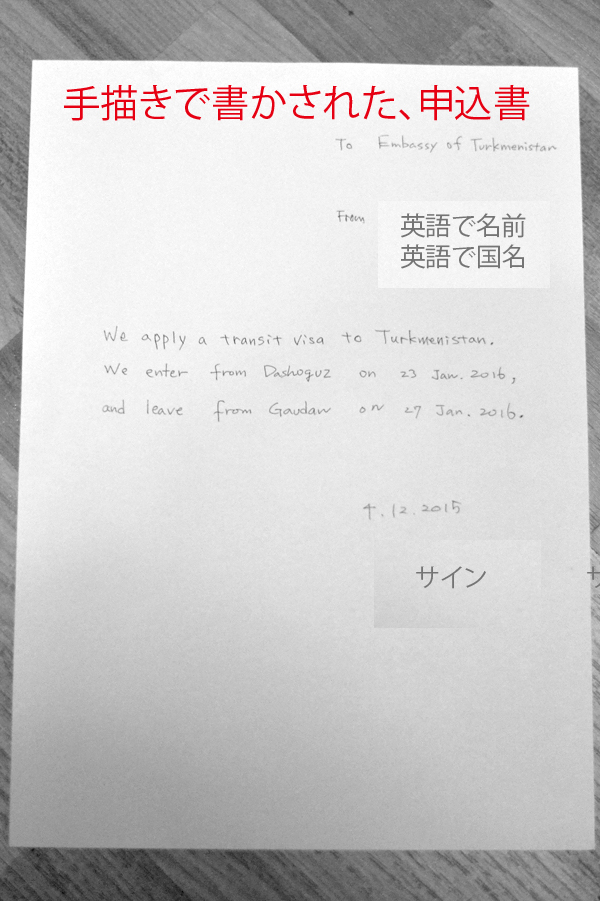 手描きで書かされた、申込書
To Embassy of Turkmenistan
From
英語で名前
英語で国名
We apply a transit visa to Turkmenistan.
We enter from Dashoguz on 23 Jan. 2016,
and leave from Gaudan on 27 Jan. 2016.
4.12.2015
サイン
サ